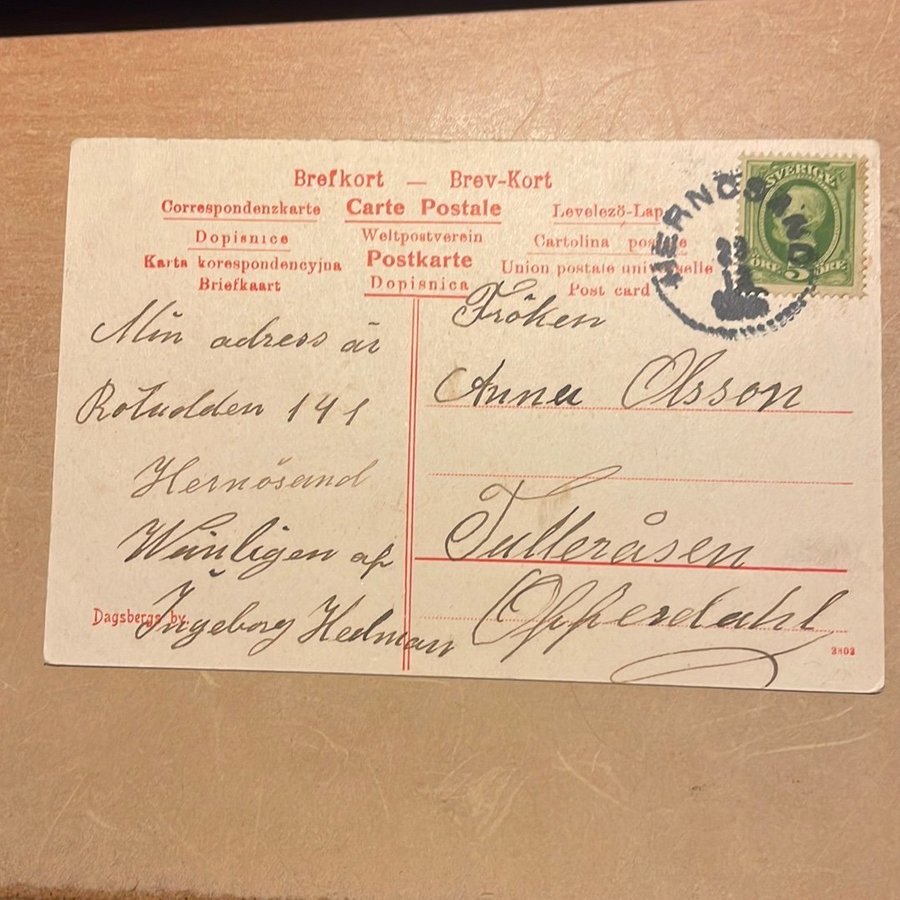 Brefkort — Brev-Kort
Correspondenzkarte Carte Postale Levelező-Lap
Dopisnice Weltpostverein Cartolina postale
Karta korespondencyjna Postkarte Union postale universelle
Briefkaart Dopisnica Post card
SVERIGE
ÖRE 5 ÖRE
HERNÖSAND
Min adress är
Rotudden 141
Hernösand
Wänligen af
Ingeborg Hedman
Dagsbergs by.
Fröken
Anna Olsson
Tulleråsen
Offerdahl